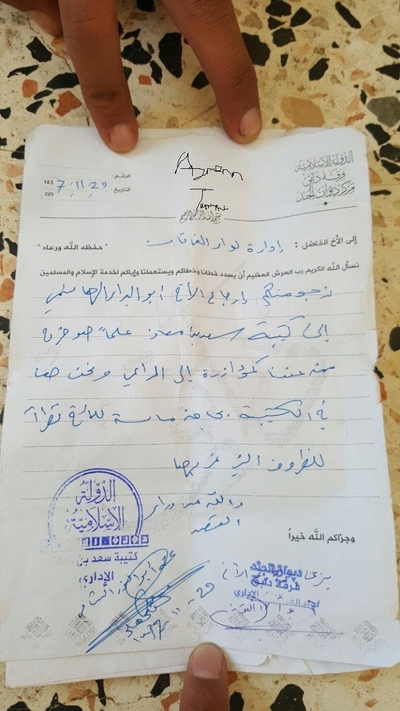 الدولة الإسلامية
فرقة دابق
مركز ديوان الجند
Aymenn
Jawad
بسم الله الرحمن الرحيم
الرقم:
143
التاريخ
7/11/29
201
إلى الأخ الفاضل: إدارة لواء
"حفظه الله ورعاه"
نسأل الله الكريم رب العرش العظيم أن يسدد خطانا وخطاكم ويستعملنا وإياكم لخدمة الإسلام والمسلمين
نرجو منكم إرجاع الأخ أبو البراء الهاشمي
إلى كتيبة سعد بن معاذ علماً هو خرج
من عندنا كمؤازرة إلى الراعي ونحن هنا
في الكتيبة بحاجة ماسة للأخ نظراً
للظروف التي نمر بها
والله من وراء
القصد
وجزاكم الله خيراً
الدولة
الإسلامية
كتيبة سعد بن
الإداري
ديوان الجند
فرقة دابق
الإداري